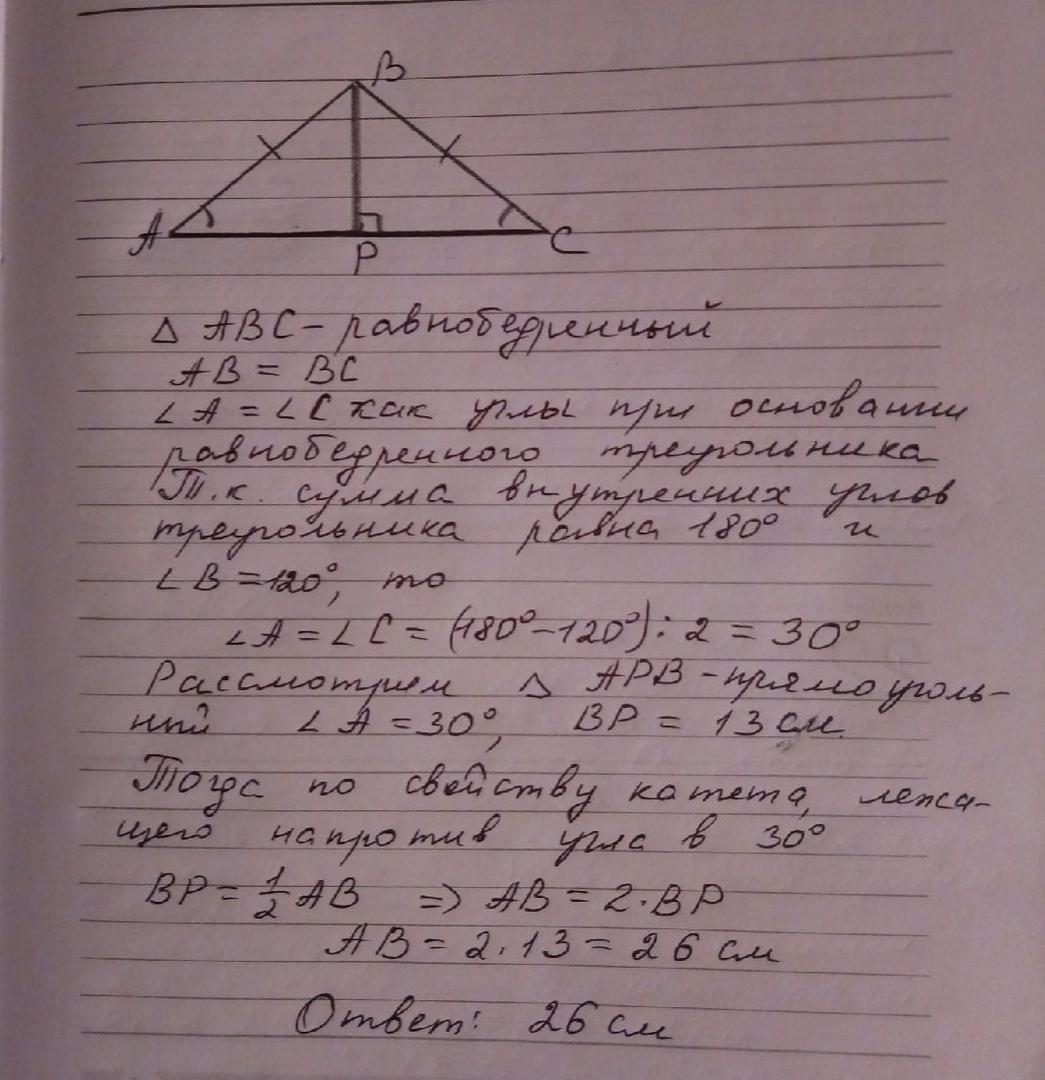 B
A
P
C
Δ ABC – равнобедренный
AB = BC
∠A = ∠C как углы при основании
равнобедренного треугольника
Т.к. сумма внутренних углов
треугольника равна 180° и
∠B = 120°, то
∠A = ∠C = (180° – 120°) : 2 = 30°
Рассмотрим Δ APB – прямоуголь-
ный ∠A = 30°, BP = 13 см.
Тогда по свойству катета, лежа-
щего напротив угла в 30°
BP = 1/2 AB ⇒ AB = 2 · BP
AB = 2 · 13 = 26 см
Ответ: 26 см